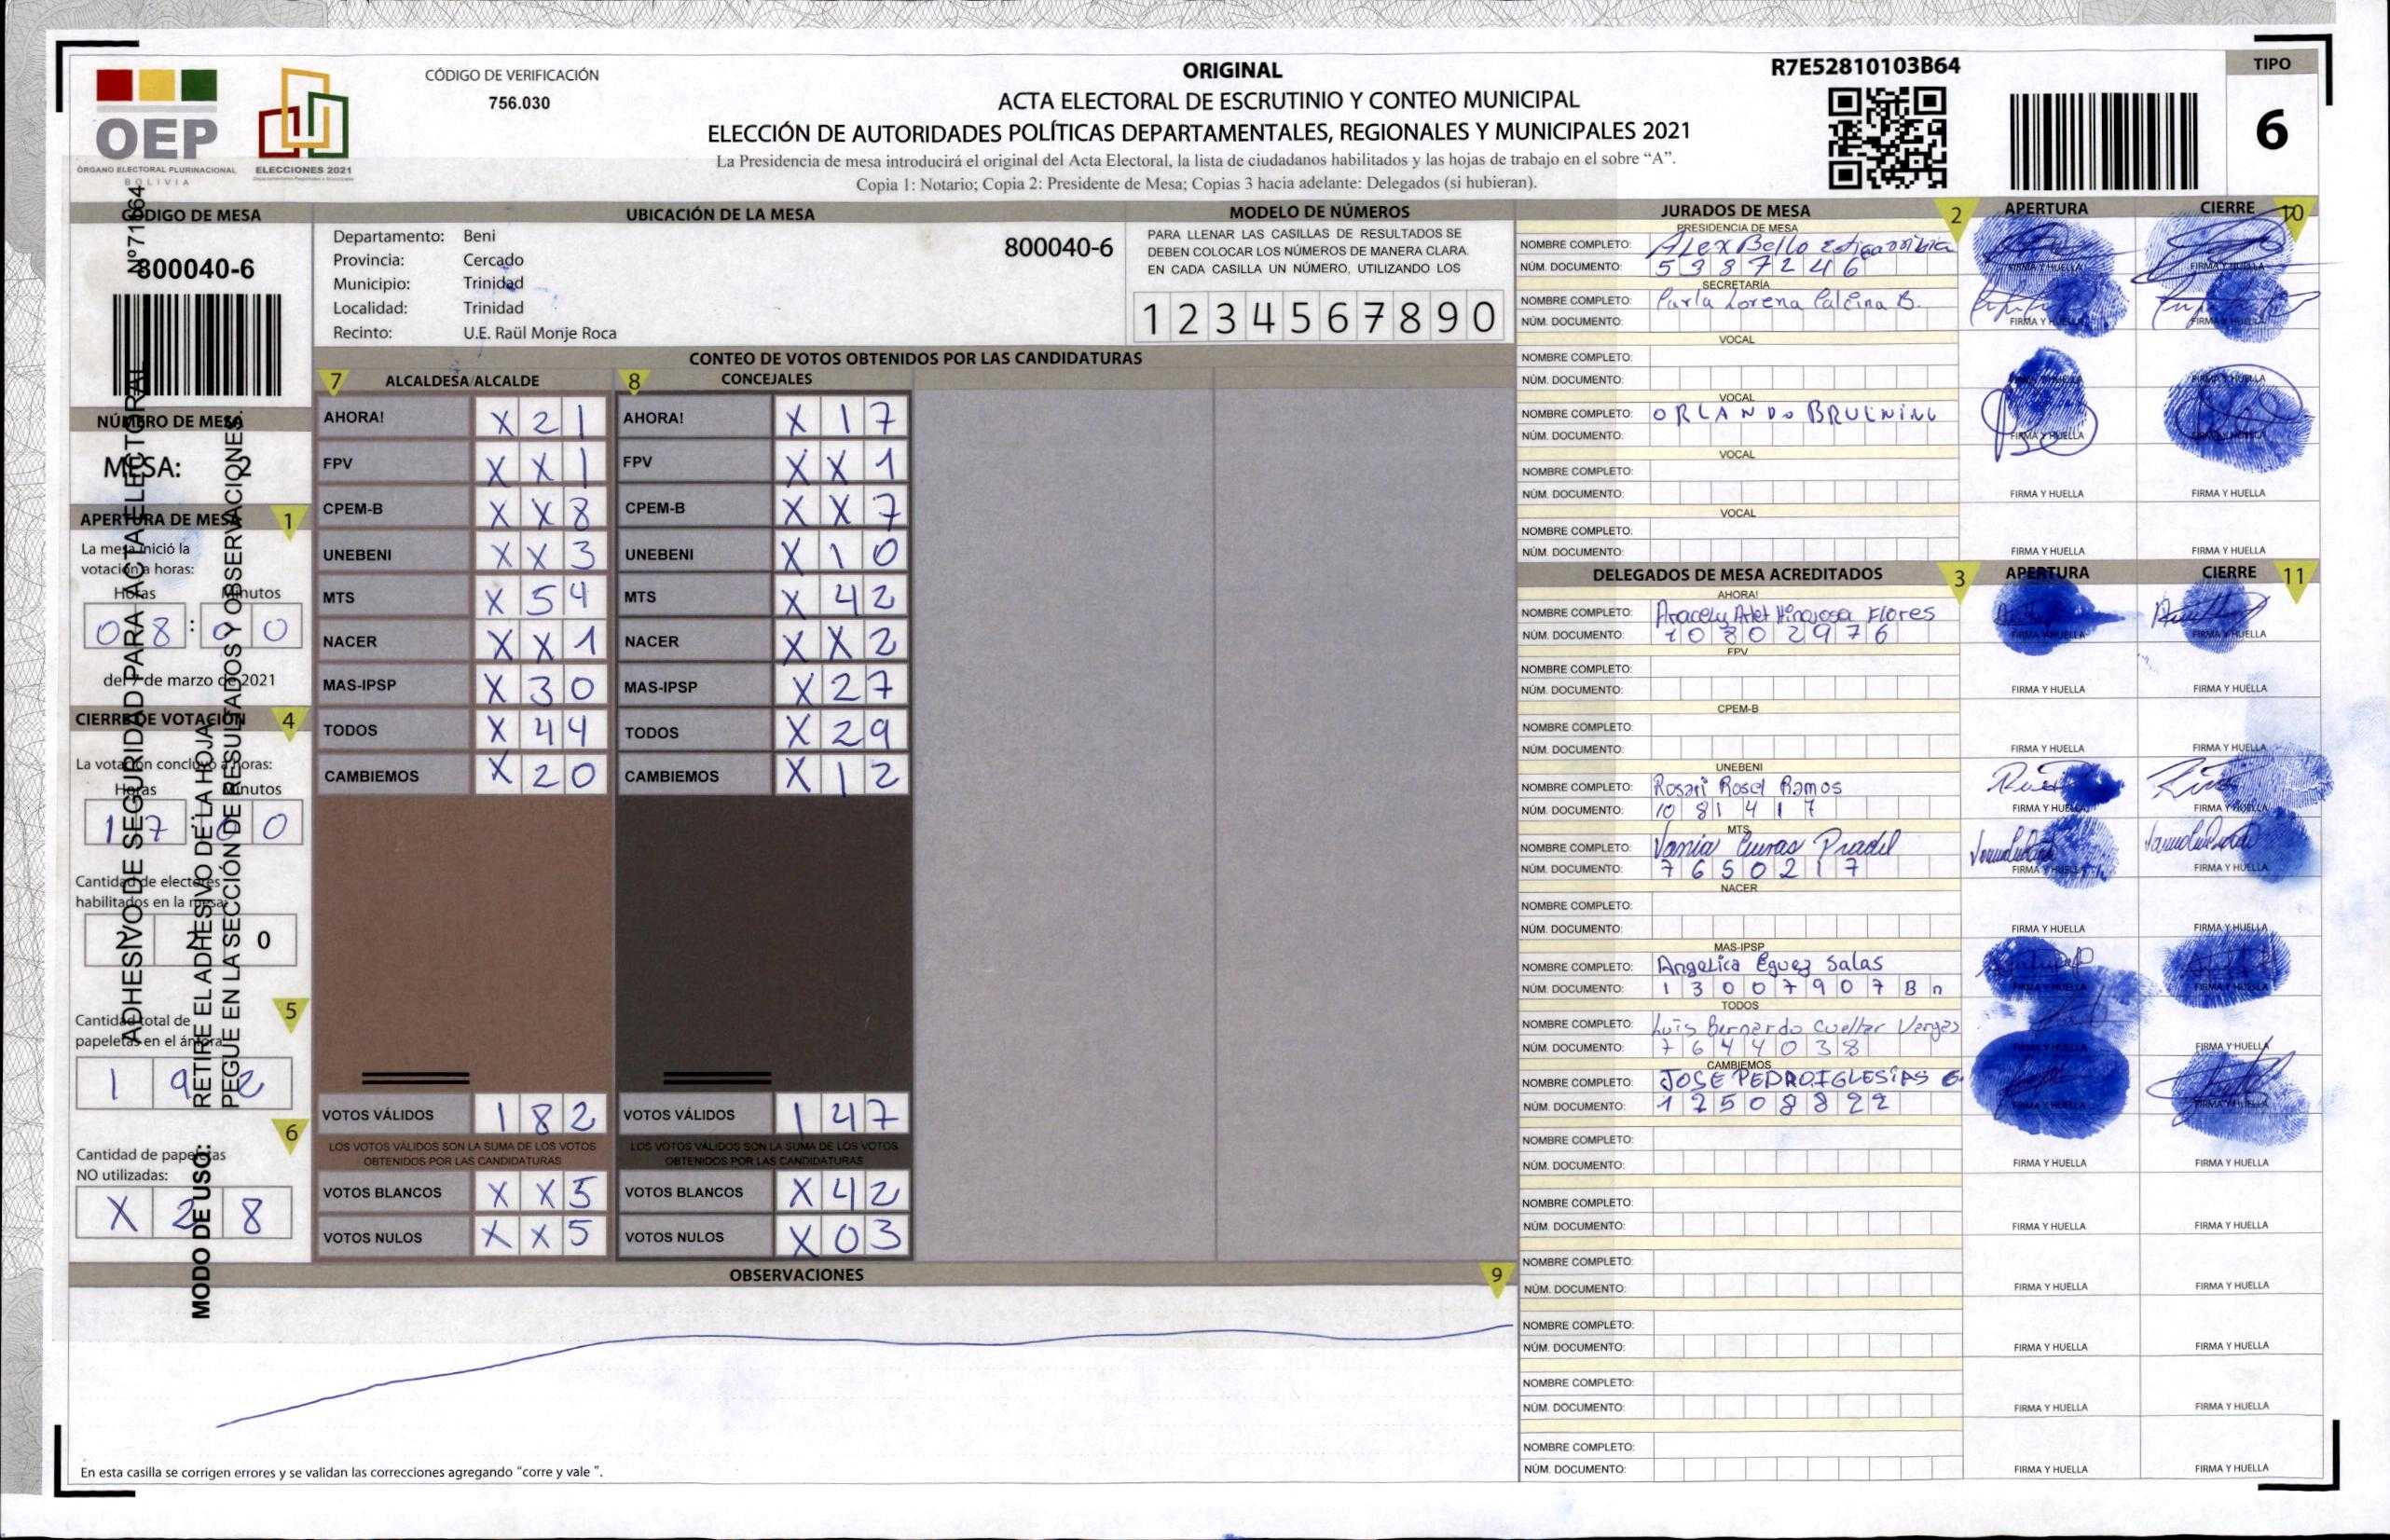 OEP
ÓRGANO ELECTORAL PLURINACIONAL
BOLIVIA
ELECCIONES 2021
CÓDIGO DE VERIFICACIÓN
756.030
ORIGINAL
ACTA ELECTORAL DE ESCRUTINIO Y CONTEO MUNICIPAL
ELECCIÓN DE AUTORIDADES POLÍTICAS DEPARTAMENTALES, REGIONALES Y MUNICIPALES 2021
La Presidencia de mesa introducirá el original del Acta Electoral, la lista de ciudadanos habilitados y las hojas de trabajo en el sobre “A”.
Copia 1: Notario; Copia 2: Presidente de Mesa; Copias 3 hacia adelante: Delegados (si hubieran).
R7E52810103B64
TIPO
6
CÓDIGO DE MESA
800040-6
NÚMERO DE MESA
MESA: 2
APERTURA DE MESA 1
La mesa inició la
votación a horas:
Horas Minutos
08:00
del 7 de marzo de 2021
CIERRE DE VOTACIÓN 4
La votación concluyó a horas:
Horas Minutos
17 00
Cantidad de electores
habilitados en la mesa:
2 2 0
5
Cantidad total de
papeletas en el ánfora:
1 9 2
6
Cantidad de papeletas
NO utilizadas:
X 2 8
ADHESIVO DE SEGURIDAD PARA ACTA ELECTORAL
MODO DE USO: RETIRE EL ADHESIVO DE LA HOJA,
PEGUE EN LA SECCIÓN DE RESULTADOS Y OBSERVACIONES.
UBICACIÓN DE LA MESA
Departamento: Beni
800040-6
Provincia: Cercado
Municipio: Trinidad
Localidad: Trinidad
Recinto: U.E. Raúl Monje Roca
MODELO DE NÚMEROS
PARA LLENAR LAS CASILLAS DE RESULTADOS SE
DEBEN COLOCAR LOS NÚMEROS DE MANERA CLARA.
EN CADA CASILLA UN NÚMERO, UTILIZANDO LOS
1 2 3 4 5 6 7 8 9 0
CONTEO DE VOTOS OBTENIDOS POR LAS CANDIDATURAS
7 ALCALDESA/ALCALDE 8 CONCEJALES
AHORA! X 2 1 AHORA! X 1 7
FPV X X 1 FPV X X 1
CPEM-B X X 8 CPEM-B X X 7
UNEBENI X X 3 UNEBENI X 1 0
MTS X 5 4 MTS X 4 2
NACER X X 1 NACER X X 2
MAS-IPSP X 3 0 MAS-IPSP X 2 7
TODOS X 4 4 TODOS X 2 9
CAMBIEMOS X 2 0 CAMBIEMOS X 1 2
VOTOS VÁLIDOS 1 8 2 VOTOS VÁLIDOS 1 4 7
LOS VOTOS VÁLIDOS SON LA SUMA DE LOS VOTOS LOS VOTOS VÁLIDOS SON LA SUMA DE LOS VOTOS
OBTENIDOS POR LAS CANDIDATURAS OBTENIDOS POR LAS CANDIDATURAS
VOTOS BLANCOS X X 5 VOTOS BLANCOS X 4 2
VOTOS NULOS X X 5 VOTOS NULOS X 0 3
OBSERVACIONES 9
En esta casilla se corrigen errores y se validan las correcciones agregando “corre y vale ”.
JURADOS DE MESA 2 APERTURA CIERRE 10
PRESIDENCIA DE MESA
NOMBRE COMPLETO: Alex Bello Estigarribia
NÚM. DOCUMENTO: 5387246 FIRMA Y HUELLA FIRMA Y HUELLA
SECRETARÍA
NOMBRE COMPLETO: Carla Lorena Calcina B.
NÚM. DOCUMENTO: FIRMA Y HUELLA FIRMA Y HUELLA
VOCAL
NOMBRE COMPLETO:
NÚM. DOCUMENTO: FIRMA Y HUELLA FIRMA Y HUELLA
VOCAL
NOMBRE COMPLETO: ORLANDO BRUENING
NÚM. DOCUMENTO: FIRMA Y HUELLA FIRMA Y HUELLA
VOCAL
NOMBRE COMPLETO:
NÚM. DOCUMENTO: FIRMA Y HUELLA FIRMA Y HUELLA
VOCAL
NOMBRE COMPLETO:
NÚM. DOCUMENTO: FIRMA Y HUELLA FIRMA Y HUELLA
DELEGADOS DE MESA ACREDITADOS 3 APERTURA CIERRE 11
AHORA!
NOMBRE COMPLETO: Aracely Arlet Hinojosa Flores
NÚM. DOCUMENTO: 10802976 FIRMA Y HUELLA FIRMA Y HUELLA
FPV
NOMBRE COMPLETO:
NÚM. DOCUMENTO: FIRMA Y HUELLA FIRMA Y HUELLA
CPEM-B
NOMBRE COMPLETO:
NÚM. DOCUMENTO: FIRMA Y HUELLA FIRMA Y HUELLA
UNEBENI
NOMBRE COMPLETO: Rosari Rosel Ramos
NÚM. DOCUMENTO: 1081417 FIRMA Y HUELLA FIRMA Y HUELLA
MTS
NOMBRE COMPLETO: Vania Cuivas Pradel
NÚM. DOCUMENTO: 7650217 FIRMA Y HUELLA FIRMA Y HUELLA
NACER
NOMBRE COMPLETO:
NÚM. DOCUMENTO: FIRMA Y HUELLA FIRMA Y HUELLA
MAS-IPSP
NOMBRE COMPLETO: Angelica Eguez Salas
NÚM. DOCUMENTO: 13007907 Bn FIRMA Y HUELLA FIRMA Y HUELLA
TODOS
NOMBRE COMPLETO: Luis Bernardo Cuellar Vargas
NÚM. DOCUMENTO: 7644038 FIRMA Y HUELLA FIRMA Y HUELLA
CAMBIEMOS
NOMBRE COMPLETO: JOSE PEDRO IGLESIAS G.
NÚM. DOCUMENTO: 12508822 FIRMA Y HUELLA FIRMA Y HUELLA
NOMBRE COMPLETO:
NÚM. DOCUMENTO: FIRMA Y HUELLA FIRMA Y HUELLA
NOMBRE COMPLETO:
NÚM. DOCUMENTO: FIRMA Y HUELLA FIRMA Y HUELLA
NOMBRE COMPLETO:
NÚM. DOCUMENTO: FIRMA Y HUELLA FIRMA Y HUELLA
NOMBRE COMPLETO:
NÚM. DOCUMENTO: FIRMA Y HUELLA FIRMA Y HUELLA
NOMBRE COMPLETO:
NÚM. DOCUMENTO: FIRMA Y HUELLA FIRMA Y HUELLA
NOMBRE COMPLETO:
NÚM. DOCUMENTO: FIRMA Y HUELLA FIRMA Y HUELLA